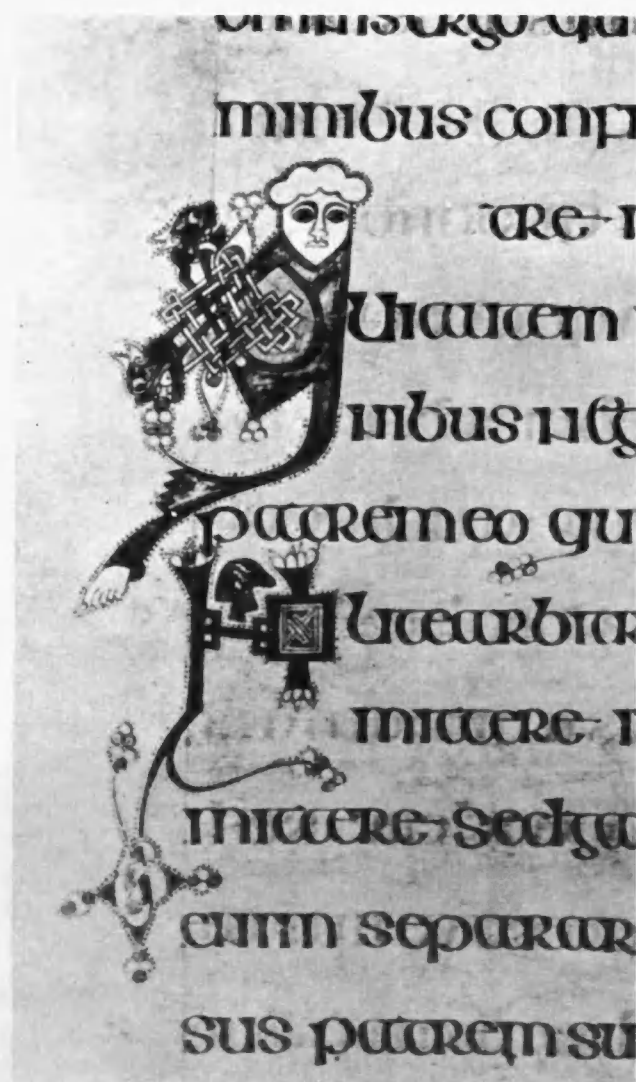 omnis ergo qui
minibus confi
tre
Qui autem
inibus neg
patrem eo qu
Nolite arbitra
mittere
mittere sed gla
enim separar
sus patrem su